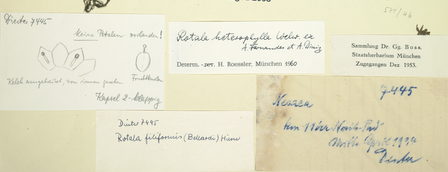 Dinter 7445
keine Petalen vorhanden!
Kelch ausgebreitet, von innen gesehen
Fruchtknoten
Kapsel 2-klappig
Rotala heterophylla Welw. ex
A. Fernandes et A. Diniz
Determ. H. Roessler, München 1960
527/46
Sammlung Dr. Gg. Boss,
Staatsherbarium München
Zugegangen Dez 1953.
Dinter 7445
Rotala filiformis (Bellardi) Hiern
7445
Nesaea
April 1934
Dinter